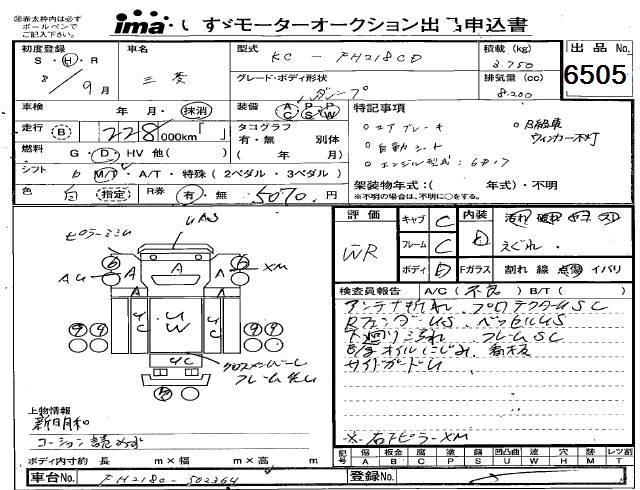 ※赤太枠内は必ず
ボールペンで
ご記入下さい。
ima
いすゞモーターオークション出品申込書
初度登録
S・H・R
8/9月
車名
三菱
型式
KC-FH218CD
積載(kg)
3.750
出品No.
6505
グレード・ボディ形状
ダンプ
排気量(cc)
8.200
車検
年 月・抹消
装備
A C P S P W
特記事項
走行
B
228,000km「 」
タコグラフ
有・無 別体
( 年 月)
○エアブレーキ
○自動シート
○エンジン型式:6D17
○B級車
ウィンカー不灯
燃料
G・D・HV 他( )
シフト
6 M/T・A/T・特殊(2ペダル・3ペダル)
色
白(指定)
R券
有・無
5070円
架装物年式:( 年式)・不明
※不明の場合は、不明に○をする。
評価
WR
キャブ
C
フレーム
C
ボディ
D
内装
D
汚れ 破れ
えぐれ
Fガラス
割れ 線 点傷 イバリ
検査員報告
A/C(不良) B/T( )
アンテナ折れ、プロテクターUSC
RフェンダーUS、ベッセルUS
下廻りさびれ フレームSC
オイルにじみ、看板
サイドガードU
※右下ピラーXM
ピラーミミU
UAS
AU
XM
A
A
A
A
6
6
9
9
9
9
UC
UC
U
W
UC
クロスメンバーU
フレーム先U
上物情報
新明和
コーション読めず
ボディ内寸約 長 m×幅 m×高 m
M/No.
傷 板金 腐 塗 錆 凹凸曲 難 穴 目 レツ割
A B C P S U W H M T
車台No.
FH218D-502364
登録No.